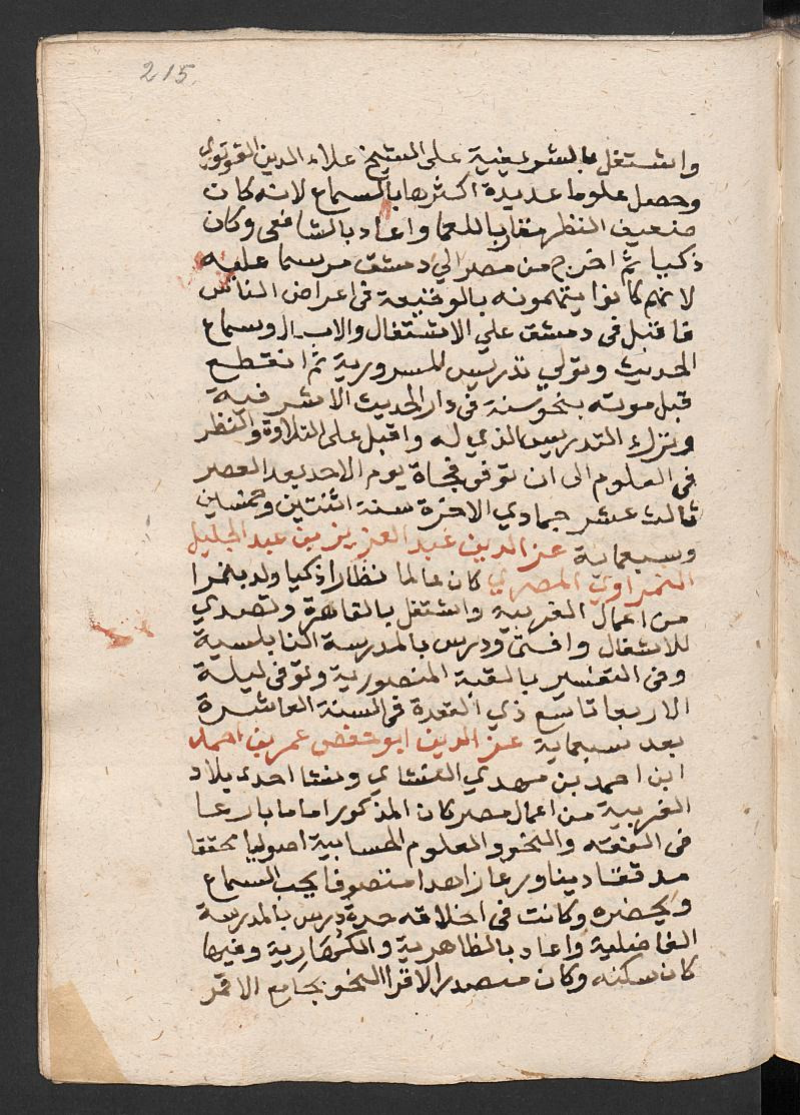 215
واشتغل بالشريفية على الشيخ علاء الدين القونوي
وحصل علوما عديدة اكثرها بالسماع لانه كان
ضعيف النظر مقاربا للعما واعاد بالشافعى وكان
ذكيا ثم اخرج من مصر الي دمشق مرسما عليه
لانهم كانوا يتهمونه بالوقيعة فى اعراض الناس
فاقبل فى دمشق علي الاشتغال والاشغال وسماع
الحديث وتولي تدريس المسرورية ثم انقطع
قبل موته بنحو سنة فى دار الحديث الاشرفية
وترك التدريس الذي له واقبل على التلاوة والنظر
فى العلوم الى ان توفى فجاة يوم الاحد بعد العصر
ثالث عشر جمادي الاخرة سنة اثنتين وخمسين
وسبعماية عز الدين عبد العزيز بن عبد الجليل
النمراوي المصري كان عالما نظارا ذكيا ولد بنمرا
من اعمال الغربية واشتغل بالقاهرة وتصدي
للاشغال وافتى ودرس بالمدرسة النابلسية
وفى التفسير بالقبة المنصورية وتوفى ليلة
الاربعا تاسع ذي القعدة فى السنة العاشرة
بعد سبعماية عز الدين ابو حفص عمر بن احمد
ابن احمد بن مهدي النشاي ونشا احدى بلاد
الغربية من اعمال مصر كان المذكور اماما بارعا
فى الفقه والنحو والعلوم الحسابية اصوليا محققا
مدققا دينا ورعا زاهدا متصوفا يحب السماع
ويحضره وكانت فى اخلاقه حدة درس بالمدرسة
الفاضلية واعاد بالظاهرية والكهارية وفيها
كان سكنه وكان متصدرا لاقرا النحو بجامع الاقمر